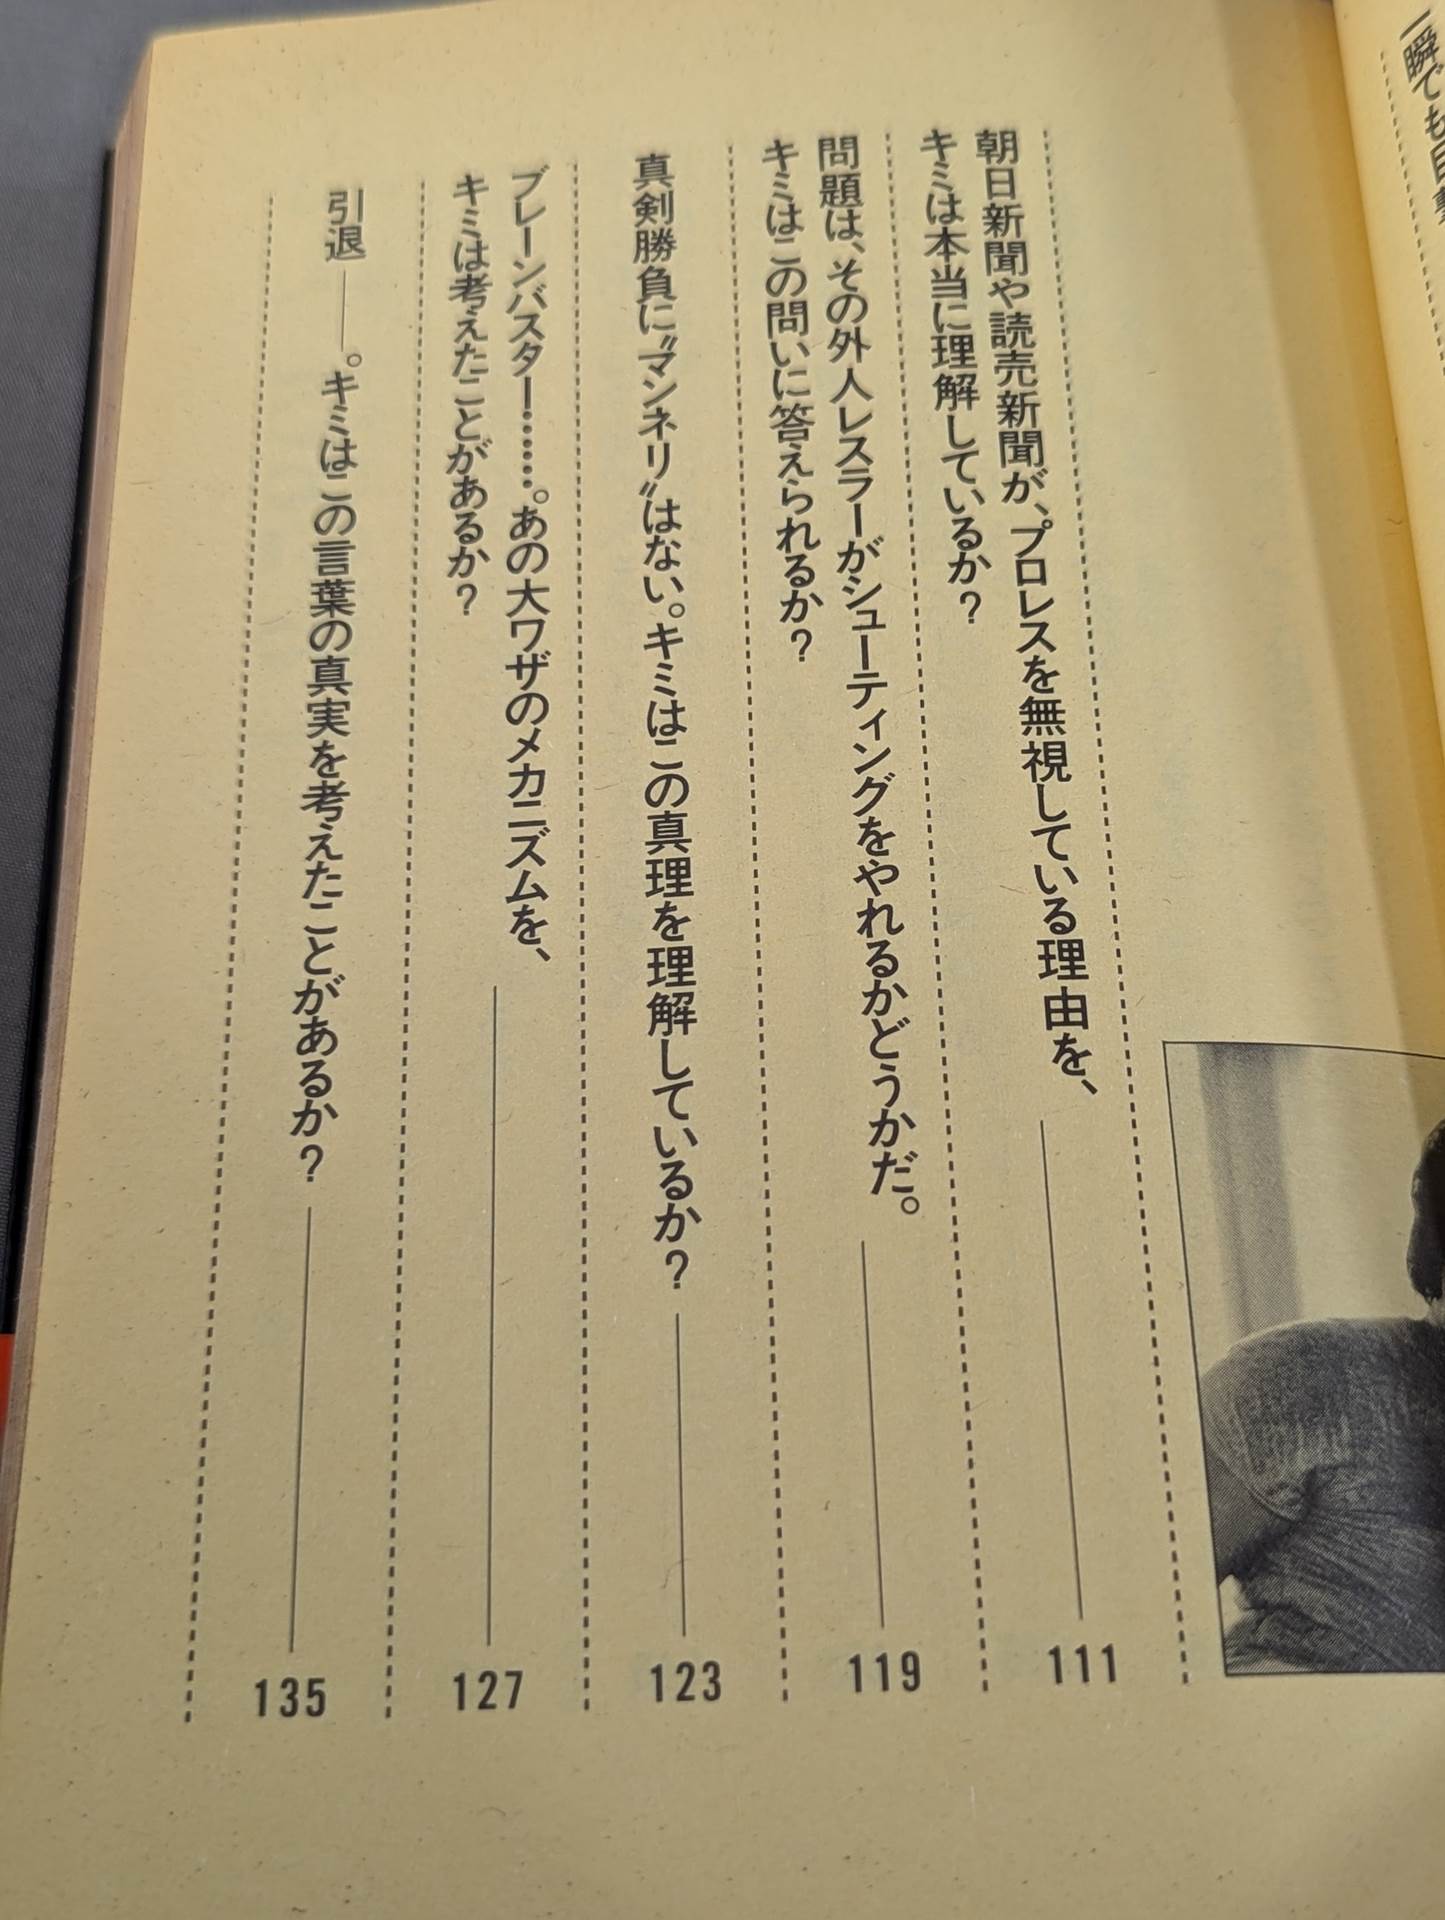 一瞬でも目
朝日新聞や読売新聞が、プロレスを無視している理由を、
キミは本当に理解しているか?
111
問題は、その外人レスラーがシューティングをやれるかどうかだ。
キミはこの問いに答えられるか?
119
真剣勝負に〝マンネリ〟はない。キミはこの真理を理解しているか?
123
ブレーンバスター……。あの大ワザのメカニズムを、
キミは考えたことがあるか?
127
引退——。キミはこの言葉の真実を考えたことがあるか?
135